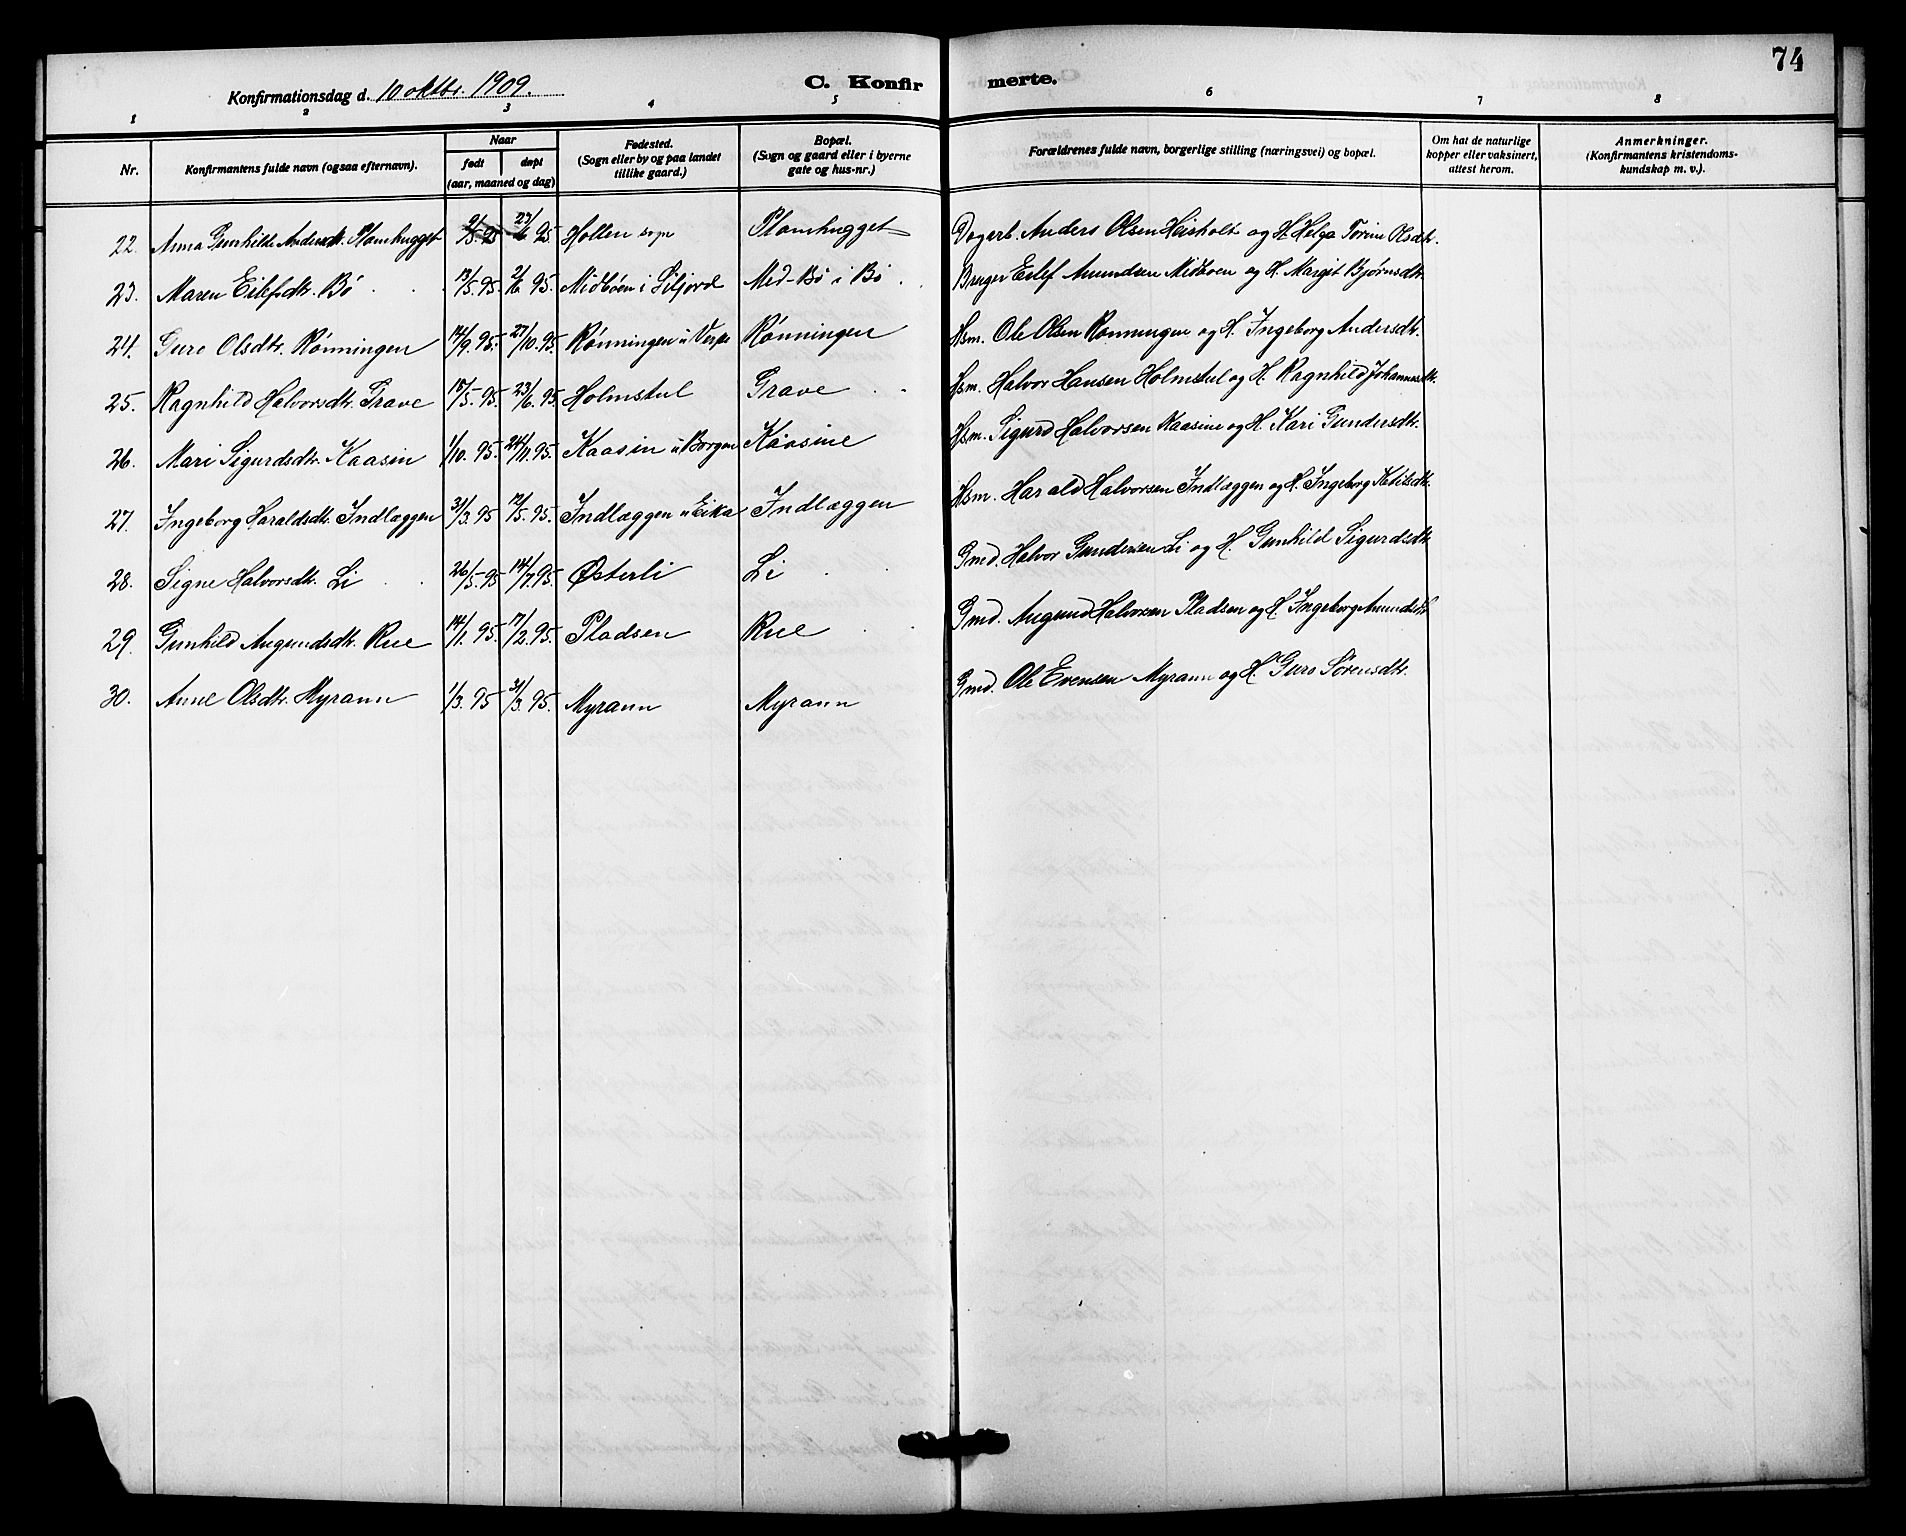 74
Konfirmationsdag d. 10 oktbr. 1909. C. Konfir merte.
1 2 3 4 5 6 7 8
Nr. Konfirmantens fulde navn (ogsaa efternavn). Naar født døpt (aar, maaned og dag) Fødested. (Sogn eller by og paa landet tillike gaard.) Bopæl. (Sogn og gaard eller i byerne gate og hus-nr.) Forældrenes fulde navn, borgerlige stilling (næringsvei) og bopæl. Om hat de naturlige kopper eller vaksinert, attest herom. Anmerkninger. (Konfirmantens kristendoms-kundskap m. v.).
22. Anna Gunhilda Andersdt. Plomhugget 9/5-95 23/6 95 Hollen sogn Plomhugget Dagarb. Anders Olsen Heisholt og H. Helga Torine Olsdtr.
23. Maren Eilefsdtr. Bø 13/5. 95. 2/6. 95. Midbøen i Siljord Med-Bø i Bø Bruger Eilef Amundsen Midbøen og H. Margit Bjørnsdtr.
24. Guro Olsdtr. Rønningen 14/9. 95. 27/10. 95. Rønningen u. Verpe Rønningen Hsm. Ole Olsen Rønningen og H. Ingeborg Andersdtr.
25. Ragnhild Halvorsdtr. Grave 15/5. 95. 23/6. 95. Holmstul Grave Hsm. Halvor Hansen Holmstul og H. Ragnhild Johannesdtr.
26. Mari Sigurdsdtr. Kaasin 1/10. 95. 24/11. 95. Kaasin u. Borgen Kaasine Hsm. Sigurd Halvorsen Kaasine og H. Kari Gundersdtr.
27. Ingeborg Haraldsdtr. Indlæggen 31/3. 95 12/5. 95. Indlæggen u. Eika Indlæggen Hsm. Harald Halvorsen Indlæggen og H. Ingeborg Ketilsdtr.
28. Signe Halvorsdtr. Li 26/5-95 14/7. 95. Østerli Li Gmd. Halvor Gundersen Li og H. Gunhild Sigurdsdtr.
29. Gunhild Augundsdtr. Rue 14/1. 95. 17/2. 95. Pladsen Rue Gmd. Augund Halvorsen Pladsen og H. Ingeborg Amundsdtr.
30. Anne Olsdtr. Myrann 1/3. 95 31/3. 95. Myrann Myrann Gmd. Ole Evensen Myrann og H. Guro Sørensdtr.